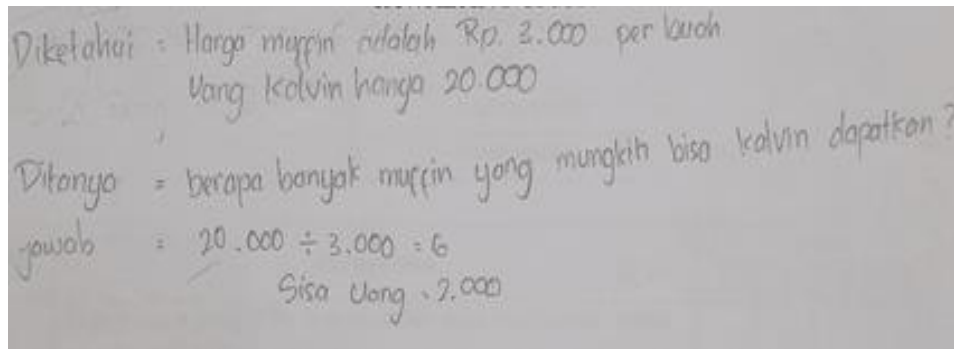 Diketahui : Harga muffin adalah Rp. 3.000 per buah
Uang Kalvin hanya 20.000
Ditanya = berapa banyak muffin yang mungkin bisa kalvin dapatkan?
jawab = 20.000 ÷ 3.000 = 6
Sisa Uang = 2.000